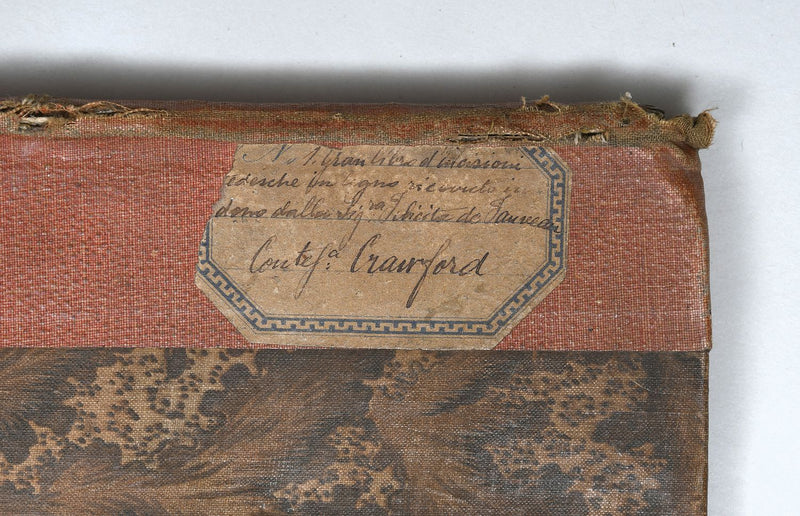 N. 1. Gran libro d'incisioni
tedesche in legno ricevuto in
dono dalla Sig.ra Felicita de Fauveau
Contess.a Crawford